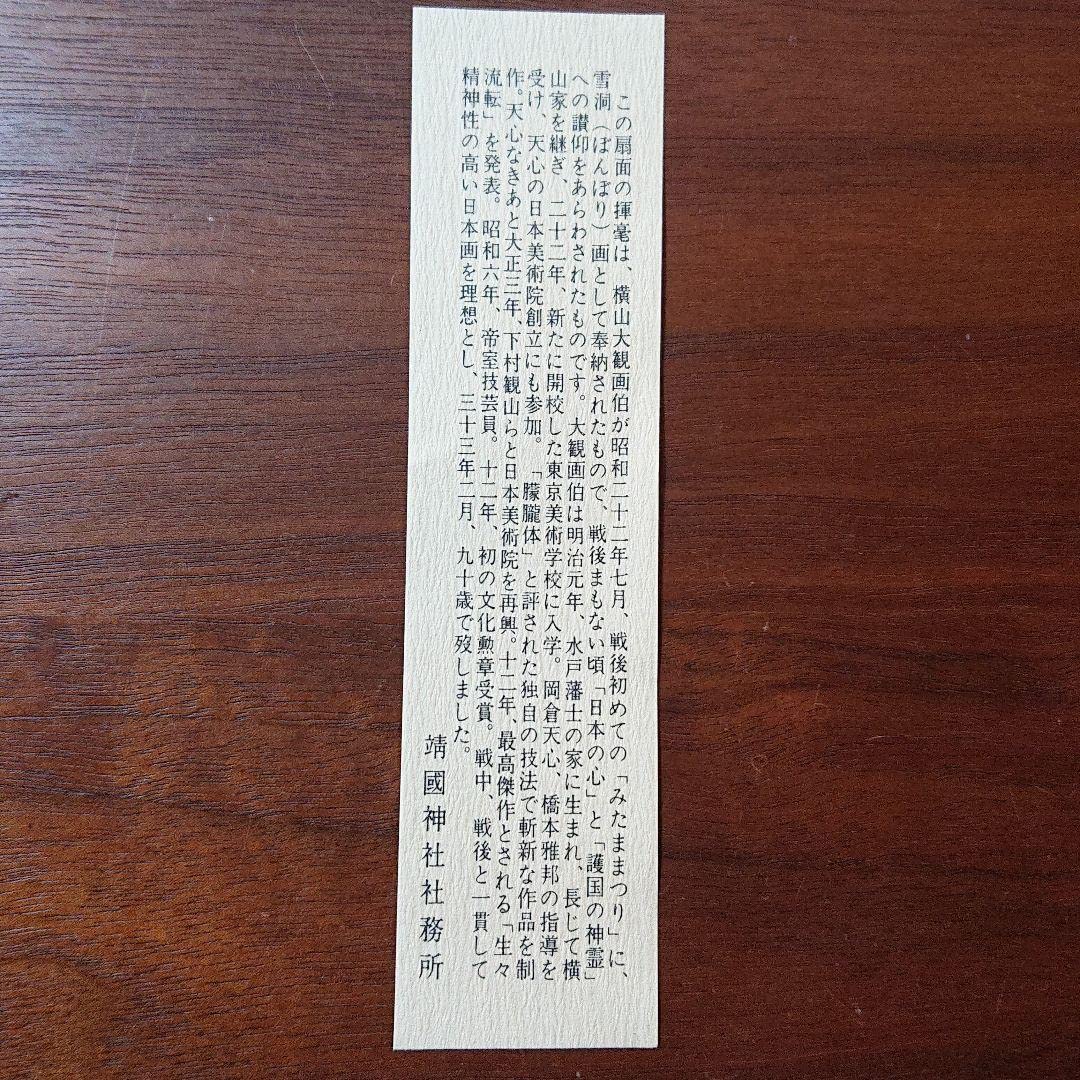 この扇面の揮毫は、横山大観画伯が昭和二十二年七月、戦後初めての「みたままつり」に、
雪洞（ぼんぼり）画として奉納されたもので、戦後まもない頃「日本の心」と「護国の神霊」
への讃仰をあらわされたものです。大観画伯は明治元年、水戸藩士の家に生まれ、長じて横
山家を継ぎ、二十二年、新たに開校した東京美術学校に入学。岡倉天心、橋本雅邦の指導を
受け、天心の日本美術院創立にも参加。「朦朧体」と評された独自の技法で斬新な作品を制
作。天心なきあと大正三年、下村観山らと日本美術院を再興。十二年、最高傑作とされる「生々
流転」を発表。昭和六年、帝室技芸員。十二年、初の文化勲章受賞。戦中、戦後と一貫して
精神性の高い日本画を理想とし、三十三年二月、九十歳で歿しました。
靖國神社社務所